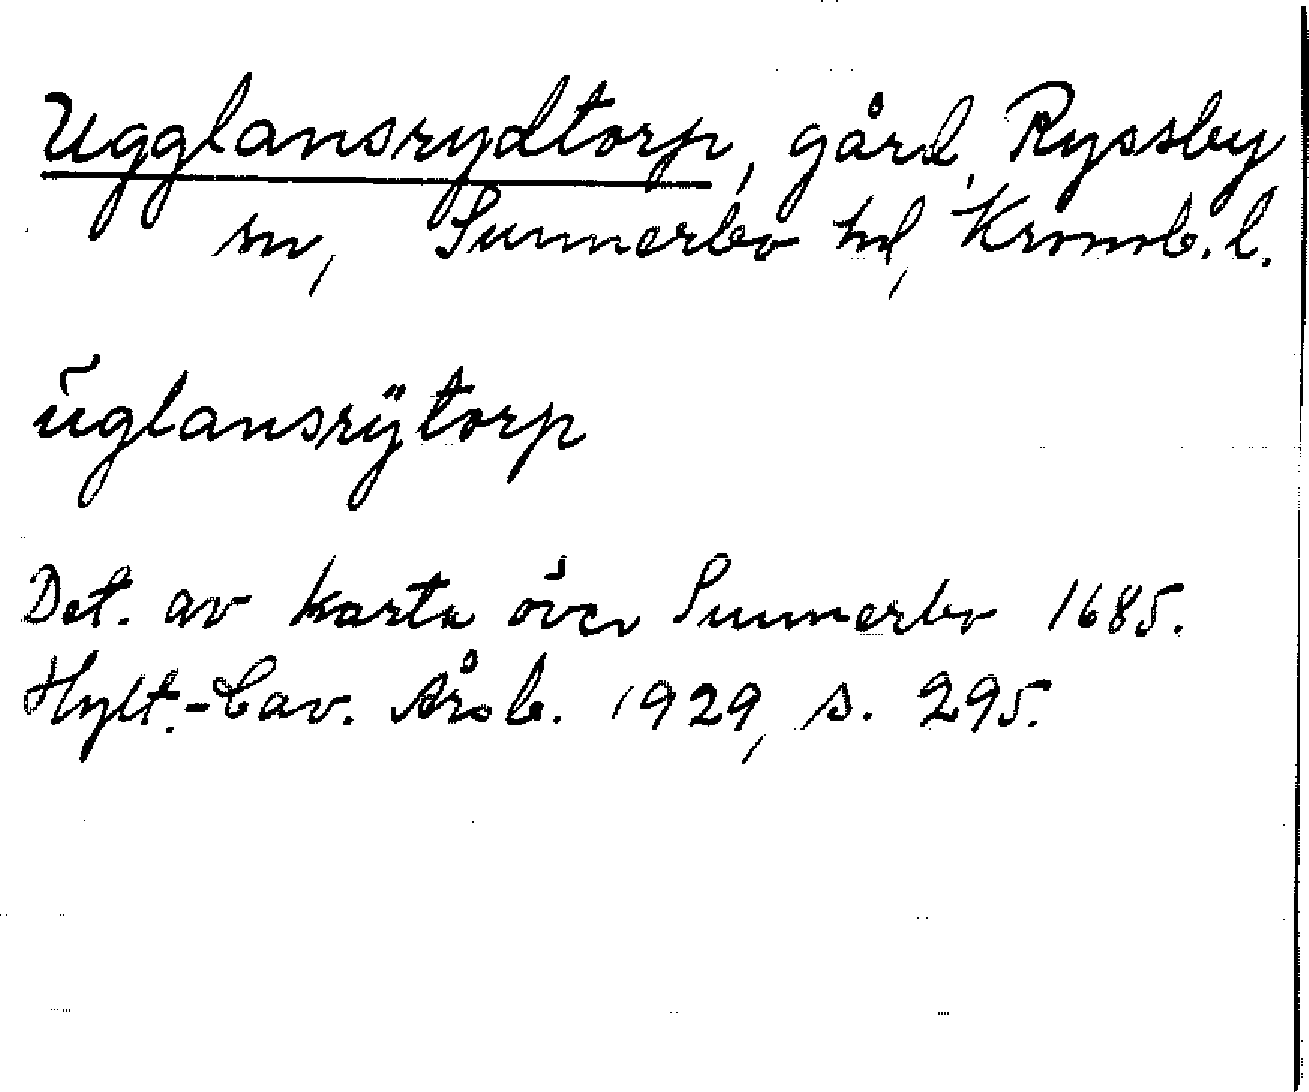 Ugglansrydtorp, gård, Ryssby
sn, Sunnerbo hd, Kronob. l.
ŭglansrÿtorp
Det. av karta över Sunnerbo 1685.
Hylt.-Cav. Årsb. 1929, s. 295.